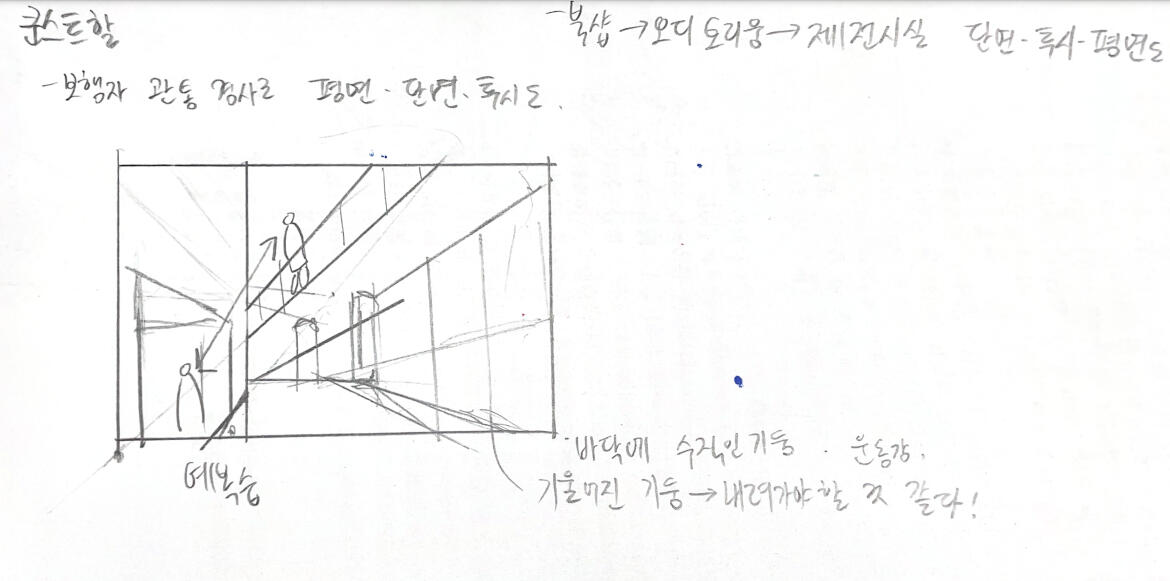 쿤스트할
- 북샵 → 오디토리움 → 제1전시실 단면 - 투시 - 평면도
- 보행자 관통 경사로 평면 · 단면 · 투시도.
· 바닥에 수직인 기둥 · 운동감.
기울어진 기둥 → 내려가야할 것 같다!